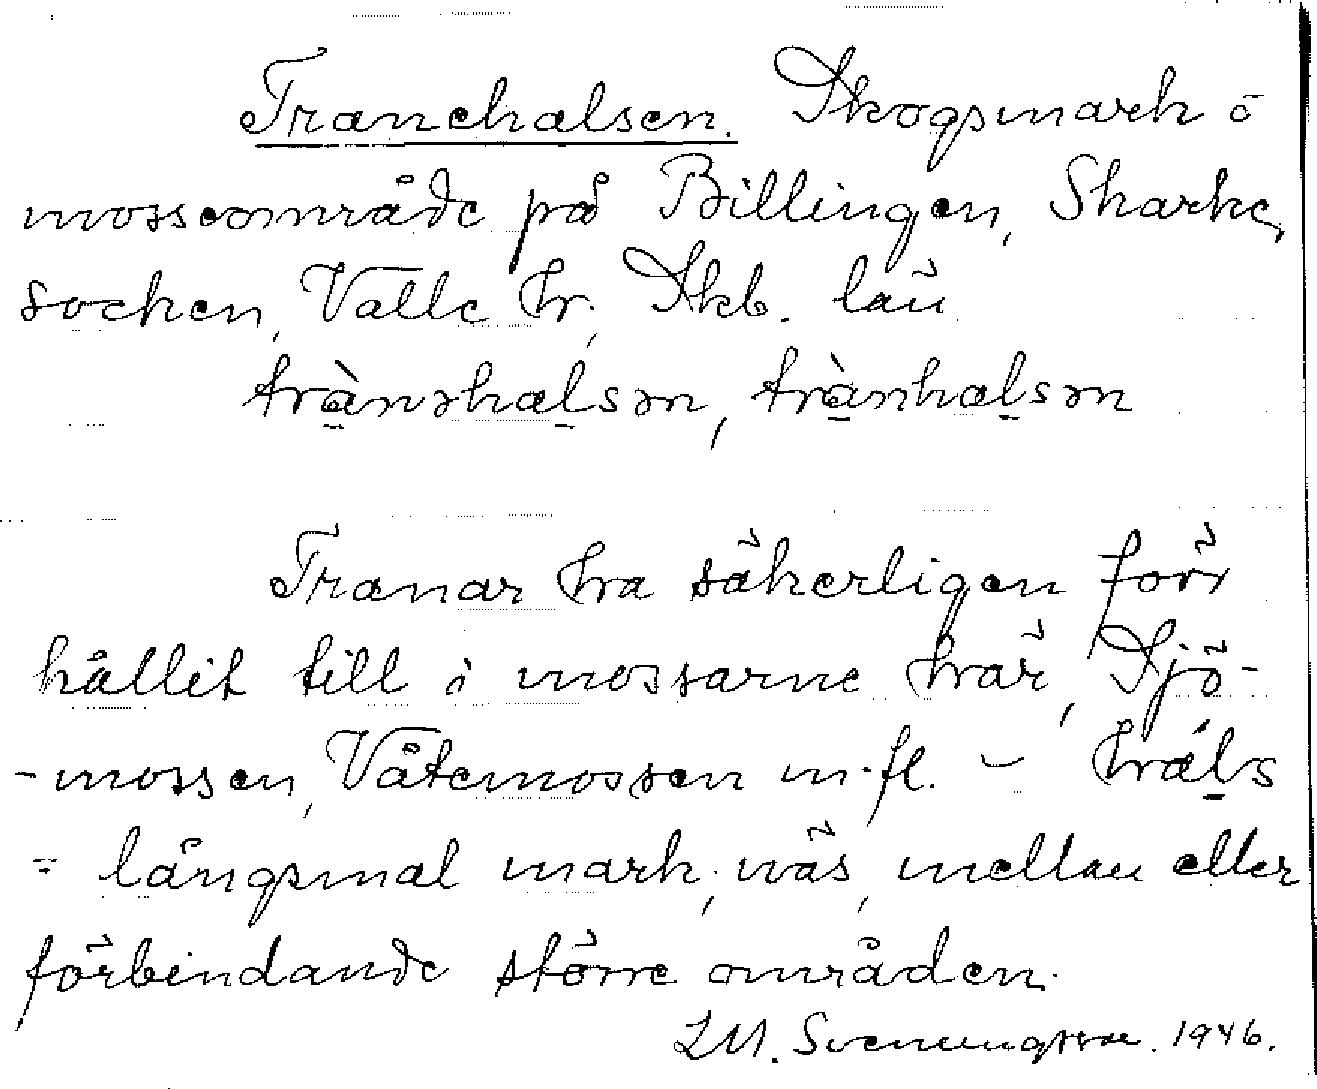 Tranehalsen. Skogsmark o
mosseområde på Billingen, Skarke
socken, Valle hr, Skb. län
trànəhalsən, trànhalsən
Tranar ha säkerligen förr
hållit till i mossarne här, Sjö-
-mossen, Våtemossen m.fl. - hals
= långsmal mark, näs, mellan eller
förbindande större områden.
LM. Svenungsson. 1946.